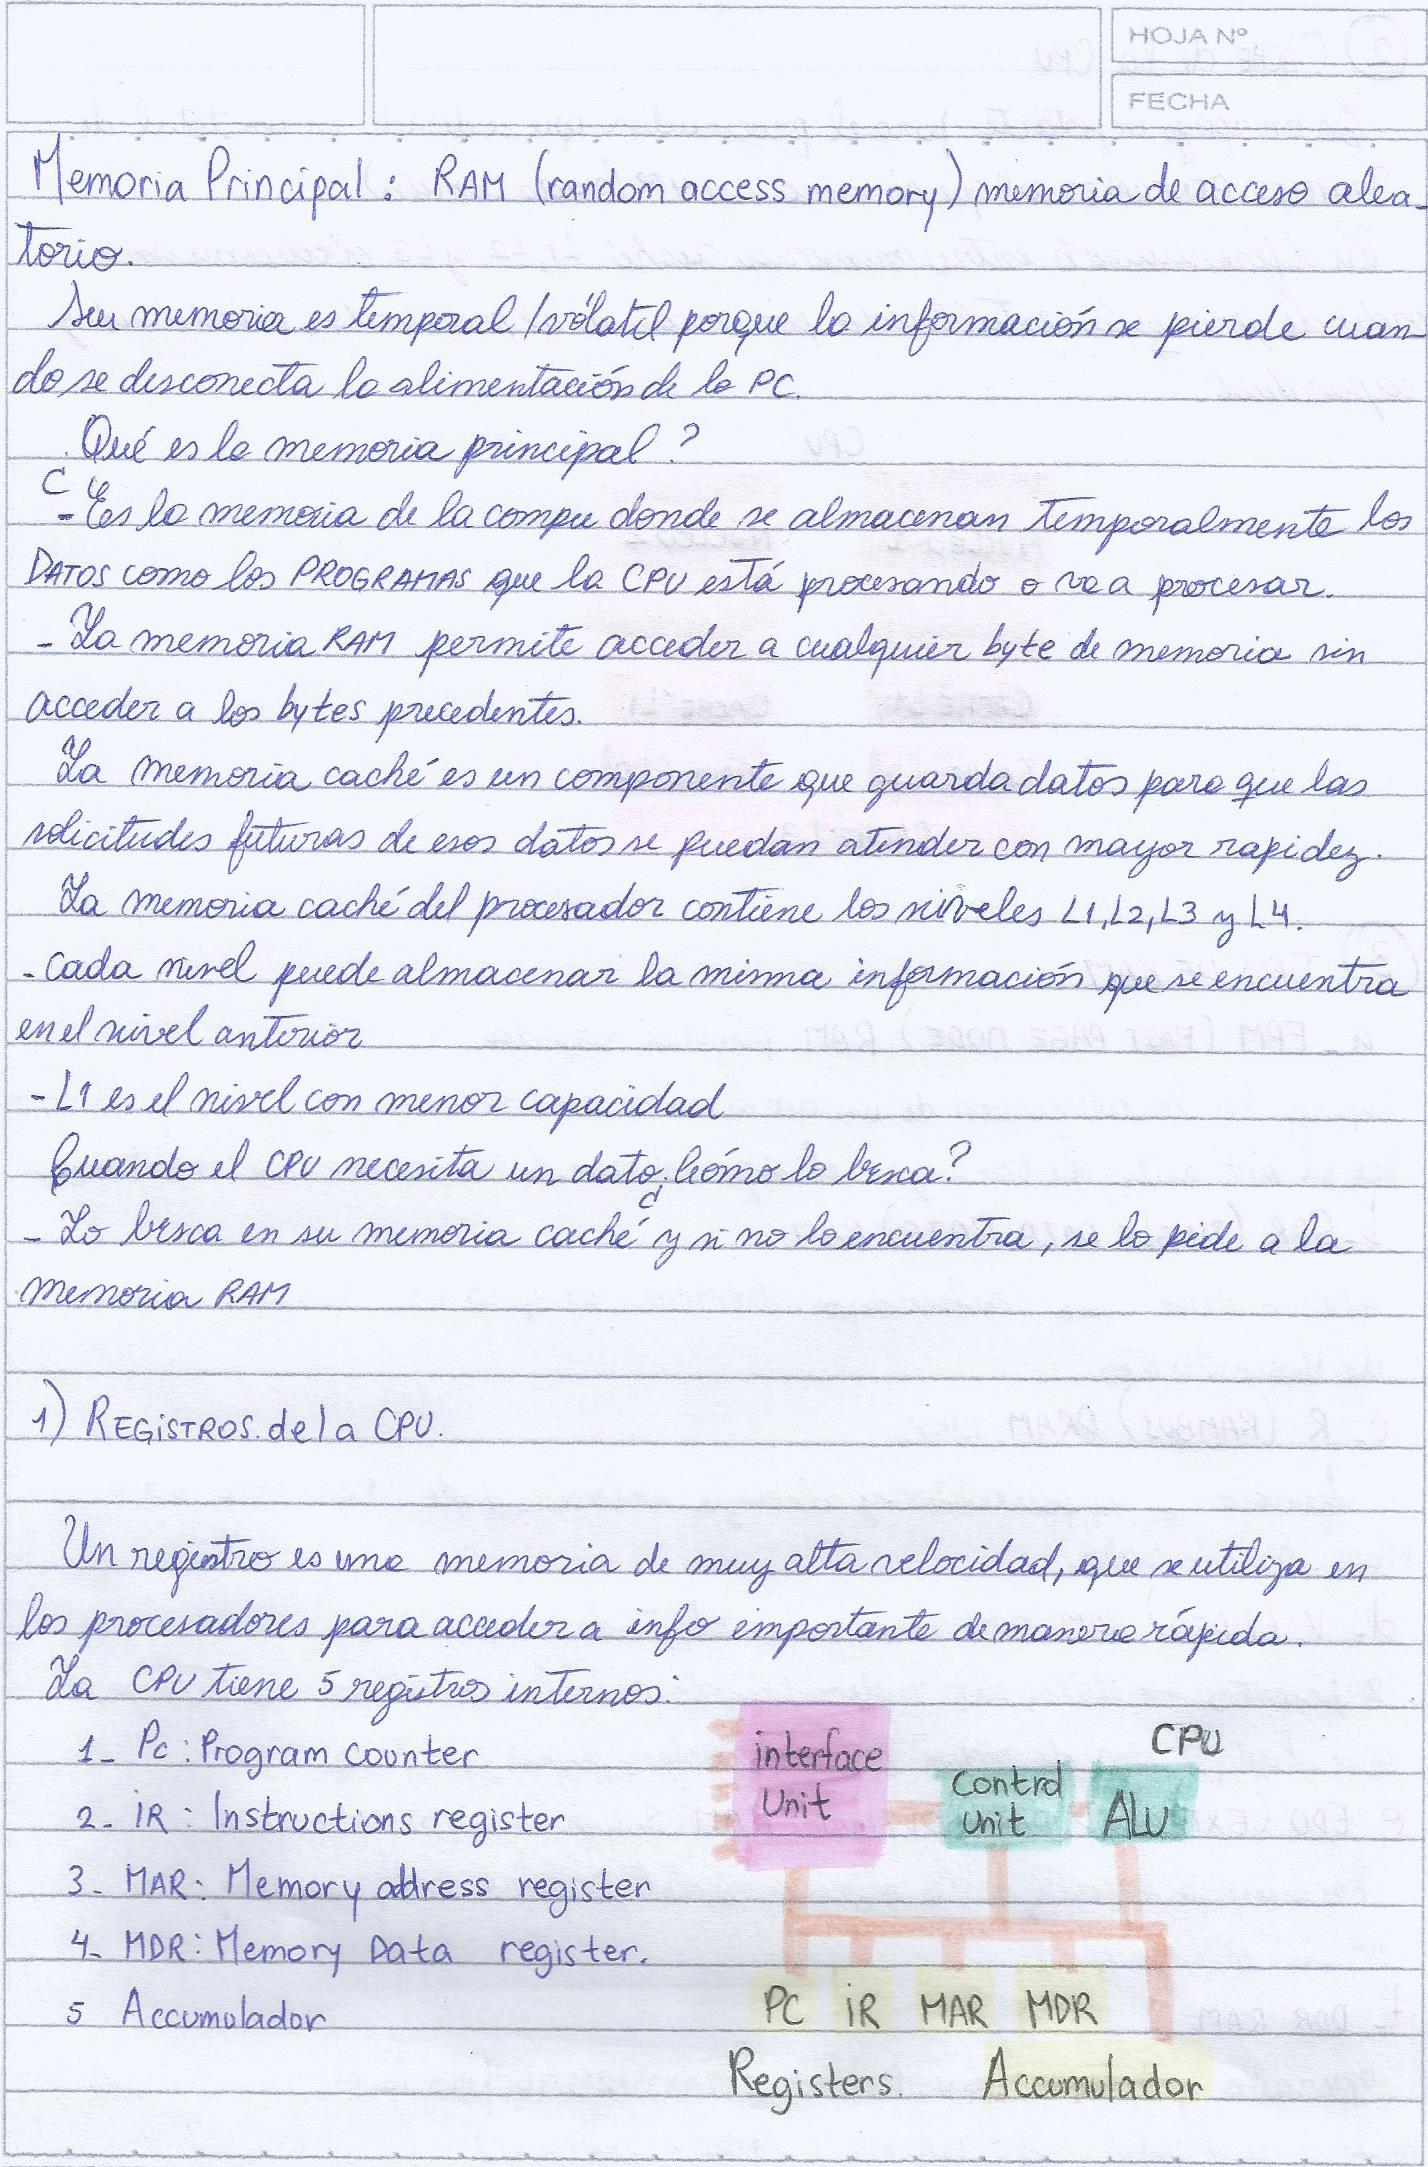 HOJA Nº
FECHA
Memoria Principal: RAM (random access memory) memoria de acceso alea-
torio.
Su memoria es temporal / volatil porque la información se pierde cuan
do se desconecta la alimentación de la PC.
¿Qué es la memoria principal?
- Es la memoria de la compu donde se almacenan temporalmente los
DATOS como los PROGRAMAS que la CPU está procesando o va a procesar.
- La memoria RAM permite acceder a cualquier byte de memoria sin
acceder a los bytes precedentes.
La memoria caché es un componente que guarda datos para que las
solicitudes futuras de esos datos se puedan atender con mayor rapidez.
La memoria caché del procesador contiene los niveles L1, L2, L3 y L4.
- Cada nivel puede almacenar la misma información que se encuentra
en el nivel anterior
- L1 es el nivel con menor capacidad
Cuando el CPU necesita un dato ¿Cómo lo busca?
- Lo busca en su memoria caché y si no lo encuentra, se lo pide a la
memoria RAM
1) REGISTROS de la CPU.
Un registro es una memoria de muy alta velocidad, que se utiliza en
los procesadores para acceder a info importante de manera rápida.
La CPU tiene 5 registros internos:
1- Pc: Program counter
2- iR: Instructions register
3- MAR: Memory address register
4- MDR: Memory Data register.
5 Accumulador
CPU
interface
Unit
Control
Unit
ALU
PC iR MAR MDR
Registers. Accumulador